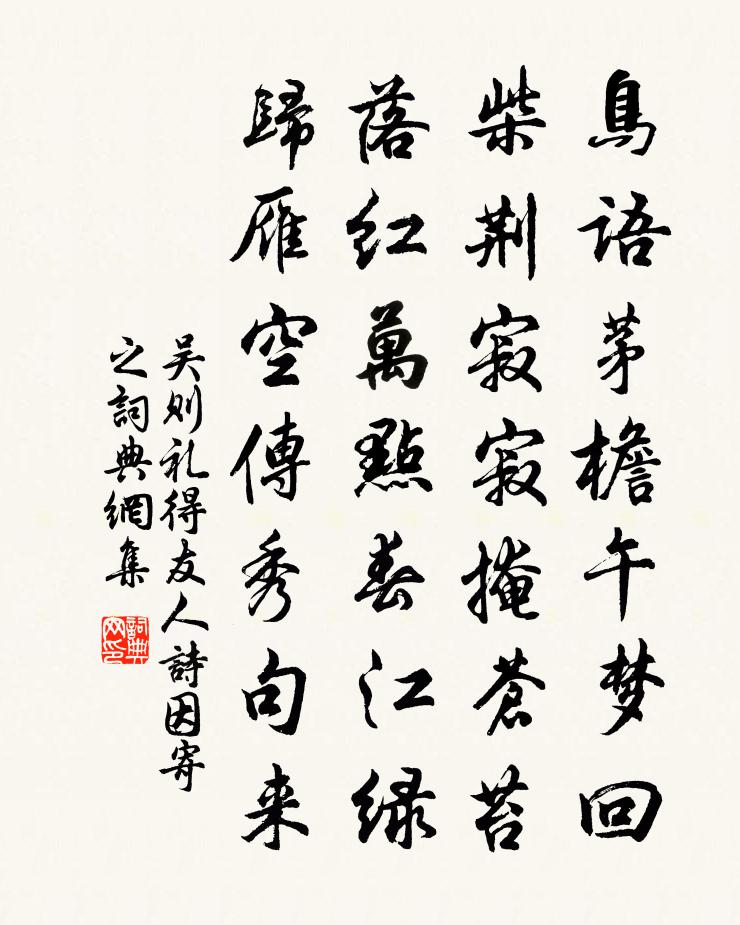 鳥語茅檐午梦回
柴荆寂寂掩蒼苔
落紅萬點春江緑
歸雁空傳秀句来
吴则礼得友人詩因寄
之詞典網集
詞典网印